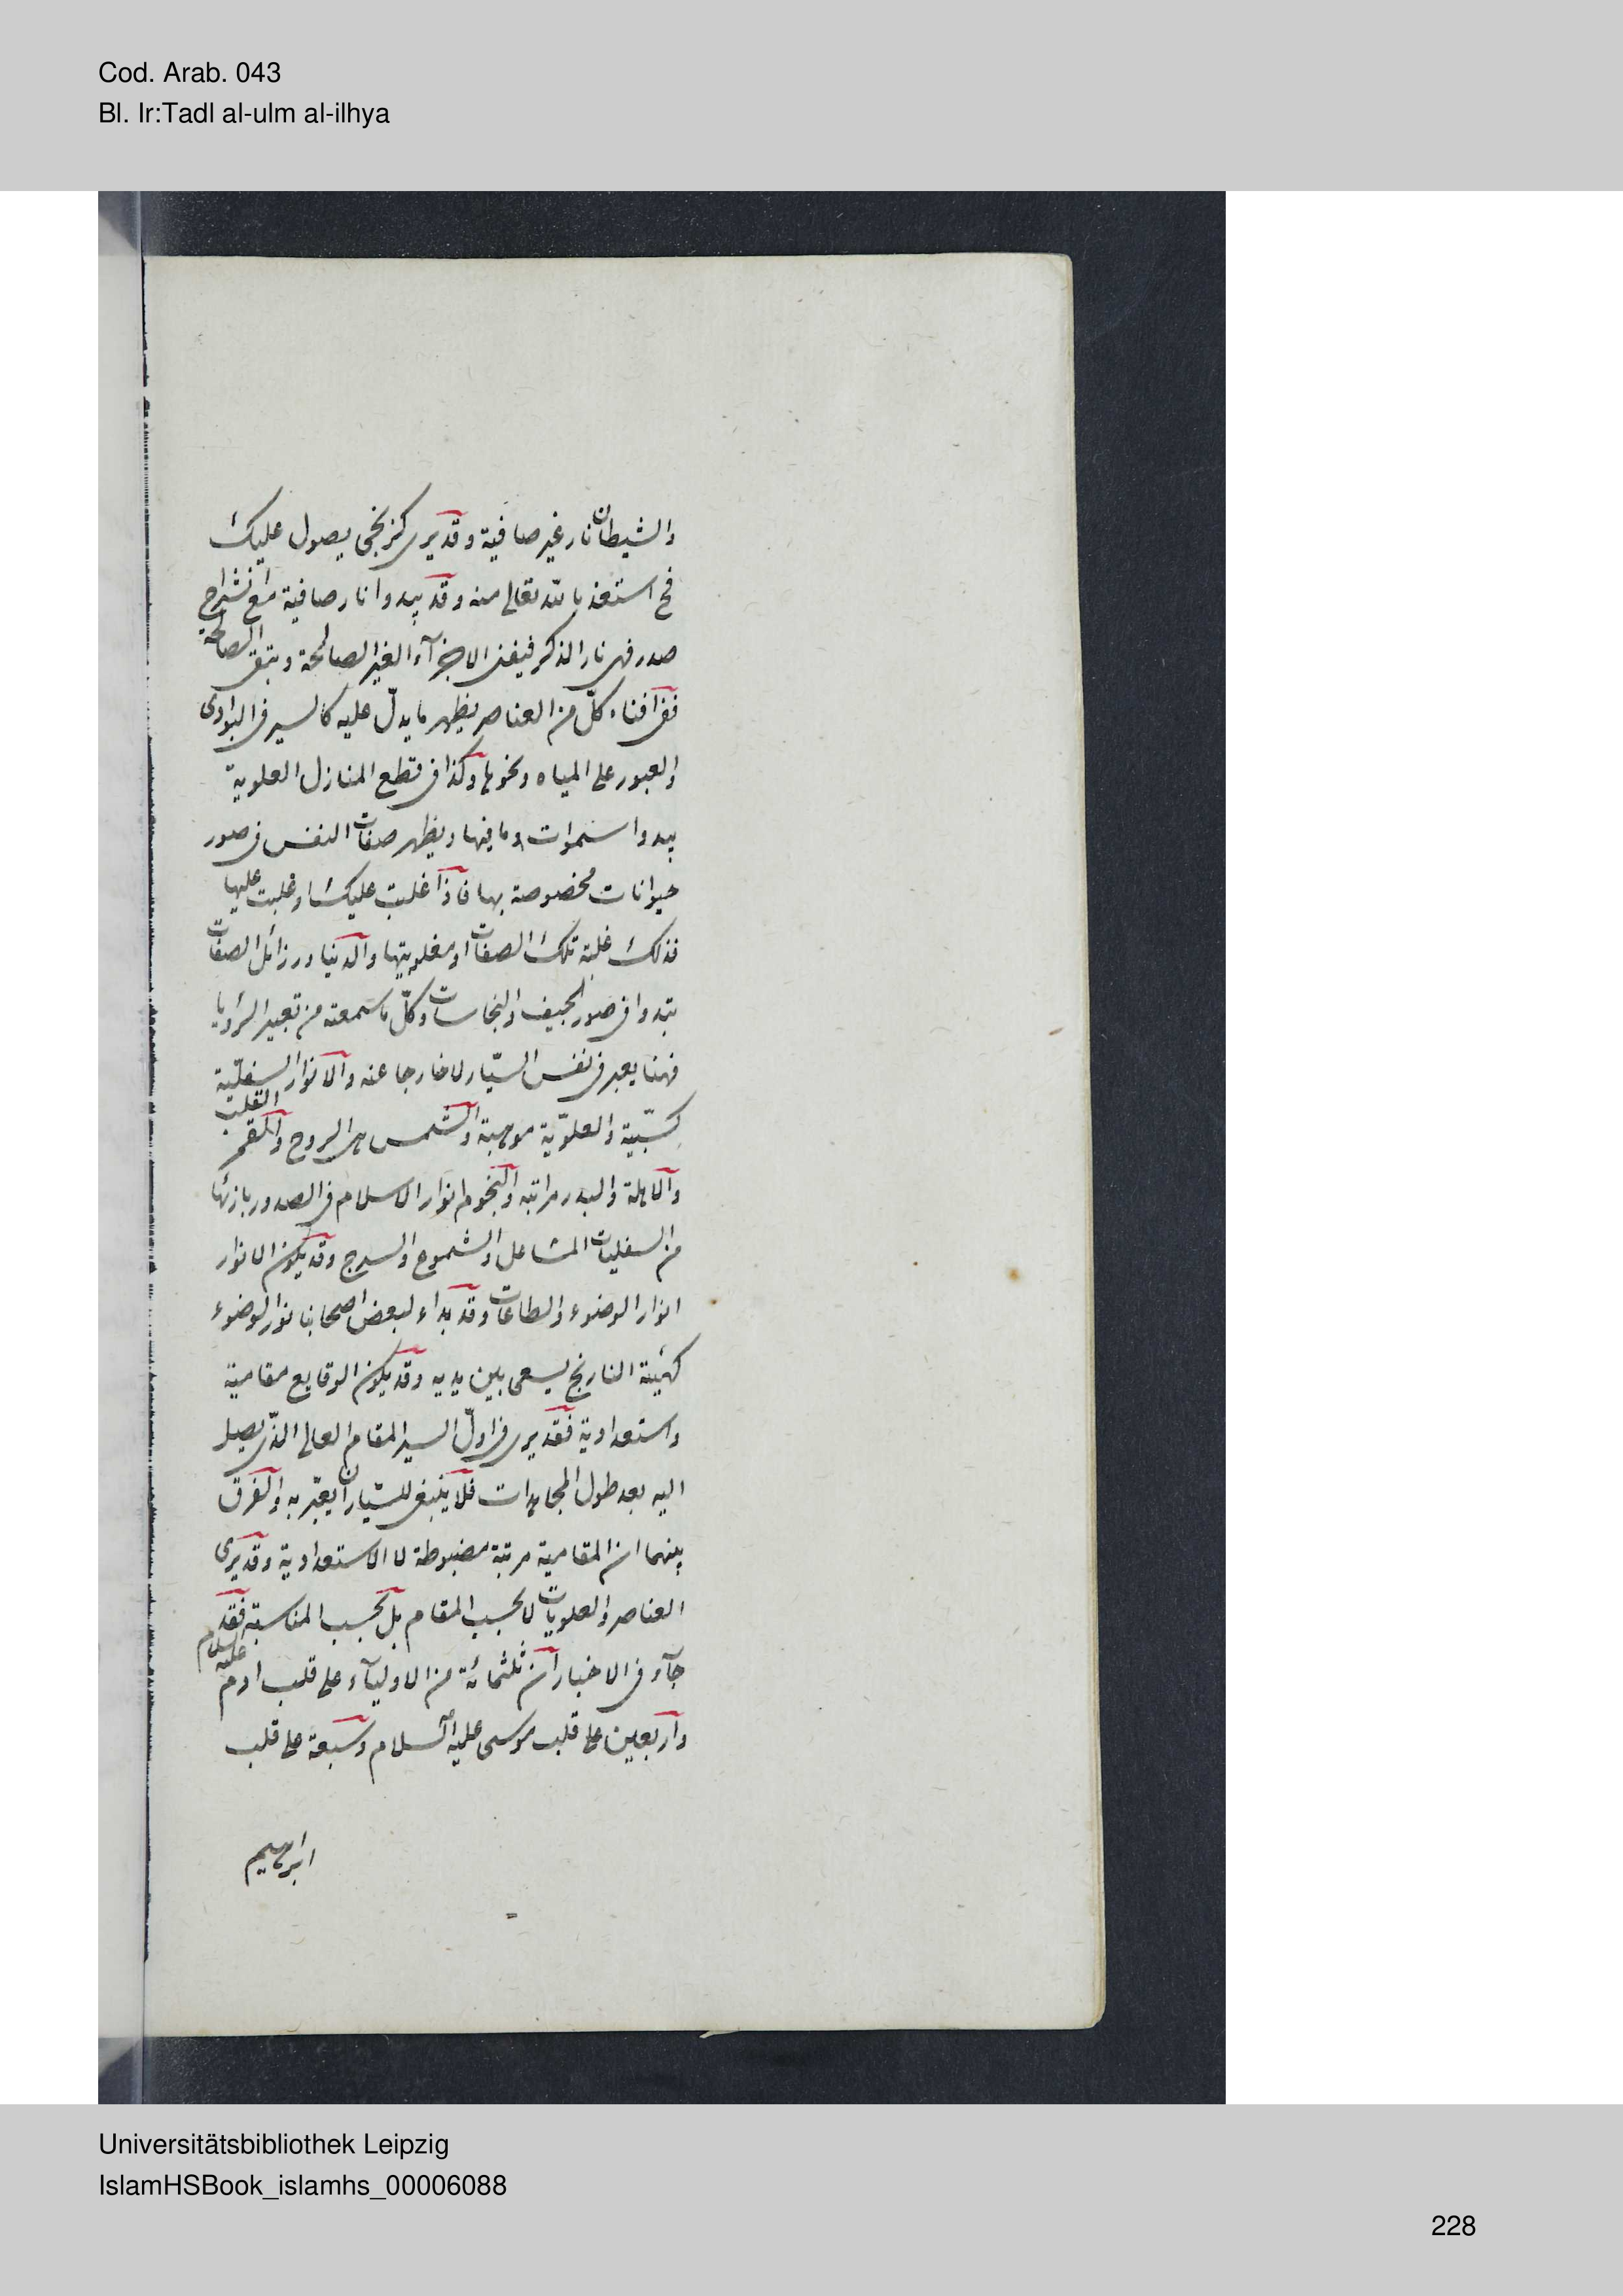 Cod. Arab. 043
Bl. Ir:Tadl al-ulm al-ilhya
والشيطان نار غير صافية وقد يرى كزنجى يصول عليك
فح استعذ بالله تعالى منه وقد يبدوا نار صافية مع انشراح
صدر فهى نار الذكر فيفنى الاجزآء الغير الصالحة ويبقى الصالحة
ففى افناء كلّ من العناصر يظهر ما يدلّ عليه كالسير فى البوادى
والعبور على المياه ونحوها وكذا فى قطع المنازل العلوية
يبدوا سموات وما فيها ويظهر صفات النفس فى صور
حيوانات مخصوصة بها فاذا غلبت عليك او غلبت عليها
فذلك غلبة تلك الصفات او مغلوبيتها والدنيا ورزائل الصفات
تبدوا فى صور الجيف والنجاسات وكلّ ما سمعته من تعبير الرؤيا
فهنا يعبر فى نفس السيّار لا خارجا عنه والانوار السفليّة
كسبيّة والعلويّة موهبة والشمس هى الروح والقمر القلب
والاهلة والبدر مراتبه والنجوم انوار الاسلام فى الصدور بازئها
من السفليات المشاعل والشموع والسرج وقد يكون الانوار
انوار الوضوء والطاعات وقد بداء لبعض اصحابنا نور الوضوء
كهيئة النارنج يسعى بين يديه وقد يكون الوقايع مقامية
واستعدادية فقد يرى فى اوّل السير المقام العالى الذّى يصل
اليه بعد طول المجاهدات فلا ينبغى للسيّار ان يغترّ به والفرق
بينهما ان المقامية مرتبة مضبوطة لا الاستعدادية وقد يرى
العناصر والعلويات لا بحسب المقام بل بحسب المناسبة فقد
جآء فى الاخبار ان ثلثمائة من الاوليآء على قلب ادم عليه السلام
واربعين على قلب موسى عليه السلام وسبعة على قلب
ابرهيم
Universitätsbibliothek Leipzig
IslamHSBook_islamhs_00006088
228